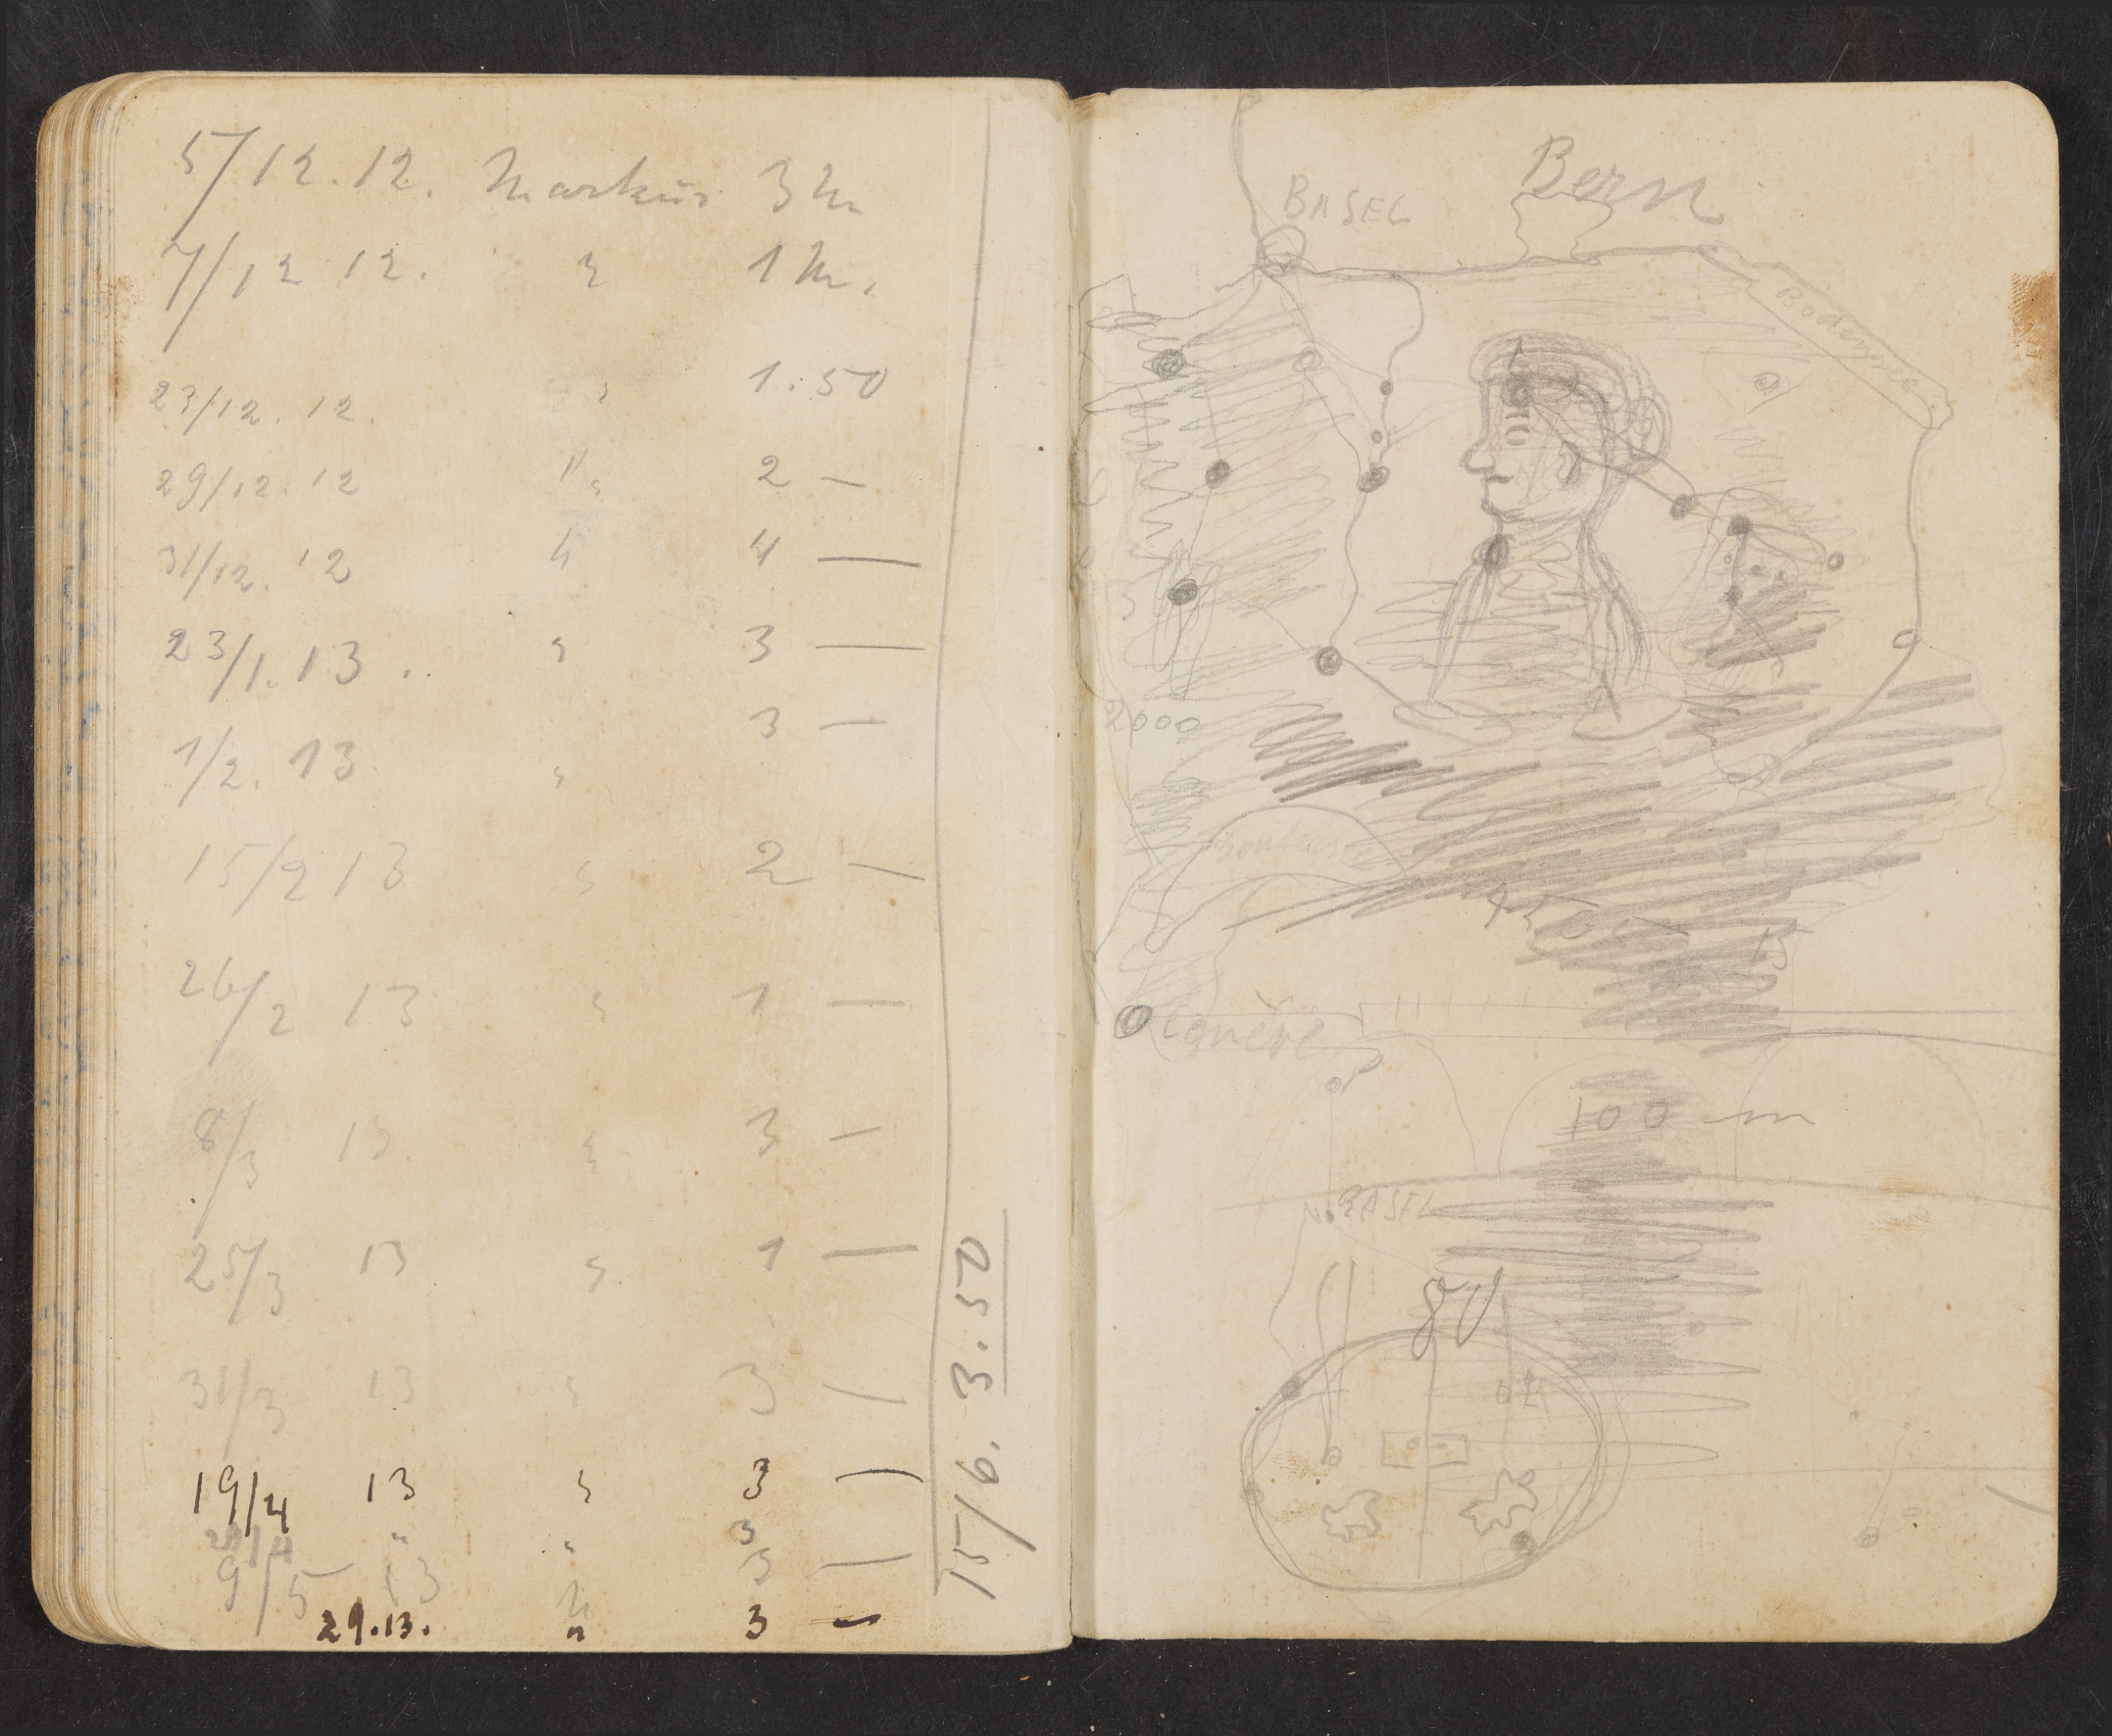 5/12.12. Markus 3 M.
7/12 12. " 1 M.
23/12. 12. " 1.50
29/12. 12 " 2 —
31/12. 12 " 4 —
23/1. 13. " 3 —
1/2. 13 " 3 —
15/2 13 " 2 —
26/2 13 " 1 —
8/3 13. " 3 —
25/3 13 " 1 —
31/3 13 " 3 —
19/4 13 " 3 —
" " 3
9/5 13 " 3 —
29.13. " 3 —
15/6. 3.50
Bern
BASEL
Bodensee
2000
450
15
Genève
100 m
BASEL
80